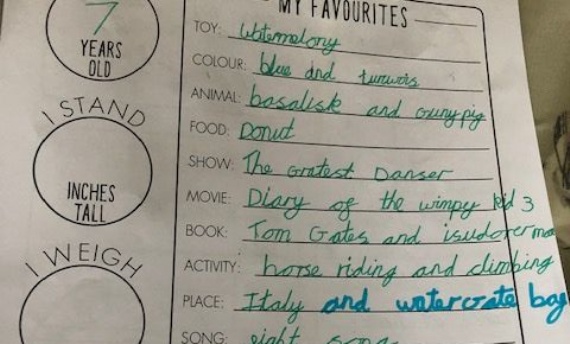 MY FAVOURITES
7
YEARS
OLD
TOY: Watermelony
COLOUR: blue and
ANIMAL: basalisk and Gunypig
FOOD: Donut
I STAND
INCHES
TALL
SHOW: The Gratest Danser
MOVIE: Diary of the wimpy kid 3
BOOK: Tom Gates and
I WEIGH
ACTIVITY: horse riding and climbing
PLACE: Italy and watercrate bay
SONG: eight song